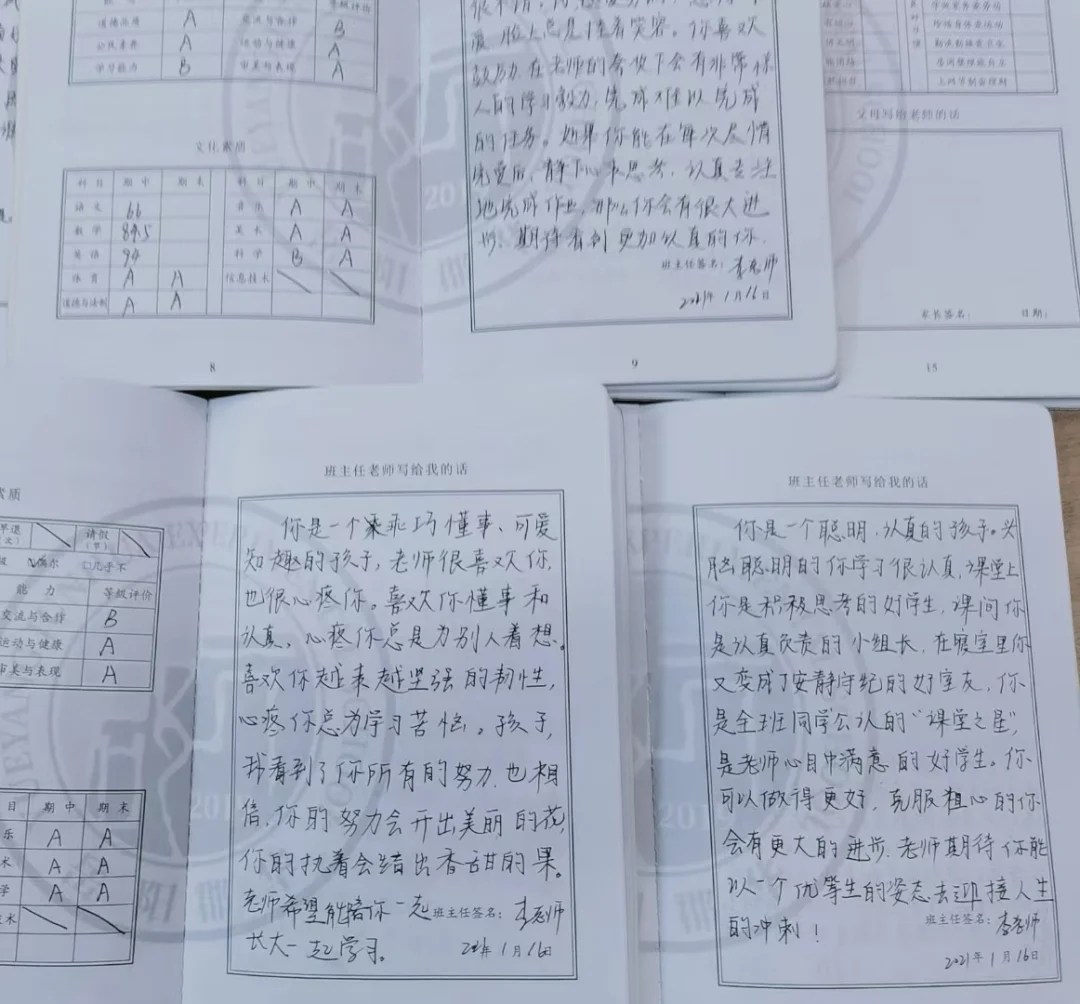 等级评价
道德品质 A 交流与合作 B
公民素养 A 运动与健康 A
学习能力 B 审美与表现 A
文化素质
科目 期中 期末 科目 期中 期末
语文 66 音乐 A A
数学 84.5 美术 A A
英语 94 科学 B A
体育 A A 信息技术
道德与法制 A A
8
爱 脸上总是挂着笑容。你喜欢
鼓励,在老师的夸奖下会有非常惊
人的学习毅力,完成难以完成
的任务。如果你能在每次尽情
玩耍后,静下心来思考,认真专注
地完成作业,那么你会有很大进
步,期待看到更加认真的你.
班主任签名:李老师
2021年1月16日
9
父母写给老师的话
家长签名: 日期:
15
素质
早退 请假
(节)
偶尔 □几乎不
能力 等级评价
交流与合作 B
运动与健康 A
审美与表现 A
目 期中 期末
乐 A A
术 A A
学 A A
技术
班主任老师写给我的话
你是一个乘乖巧懂事、可爱
知趣的孩子,老师很喜欢你,
也很心疼你。喜欢你懂事和
认真,心疼你总是为别人着想。
喜欢你越来越坚强的韧性,
心疼你总为学习苦恼。孩子,
我看到了你所有的努力,也相
信,你的努力会开出美丽的花,
你的执着会结出香甜的果。
老师希望能陪你一起
班主任签名:李老师
长大一起学习。
2021年1月16日
班主任老师写给我的话
你是一个聪明,认真的孩子。头
脑聪明的你学习很认真,课堂上
你是积极思考的好学生,课间你
是认真负责的小组长,在寝室里你
又变成了安静守纪的好室友,你
是全班同学公认的“课堂之星”,
是老师心目中满意的好学生。你
可以做得更好,克服粗心的你
会有更大的进步.老师期待你能
以一个优等生的姿态去迎接人生
的冲刺!
班主任签名:李老师
2021年1月16日